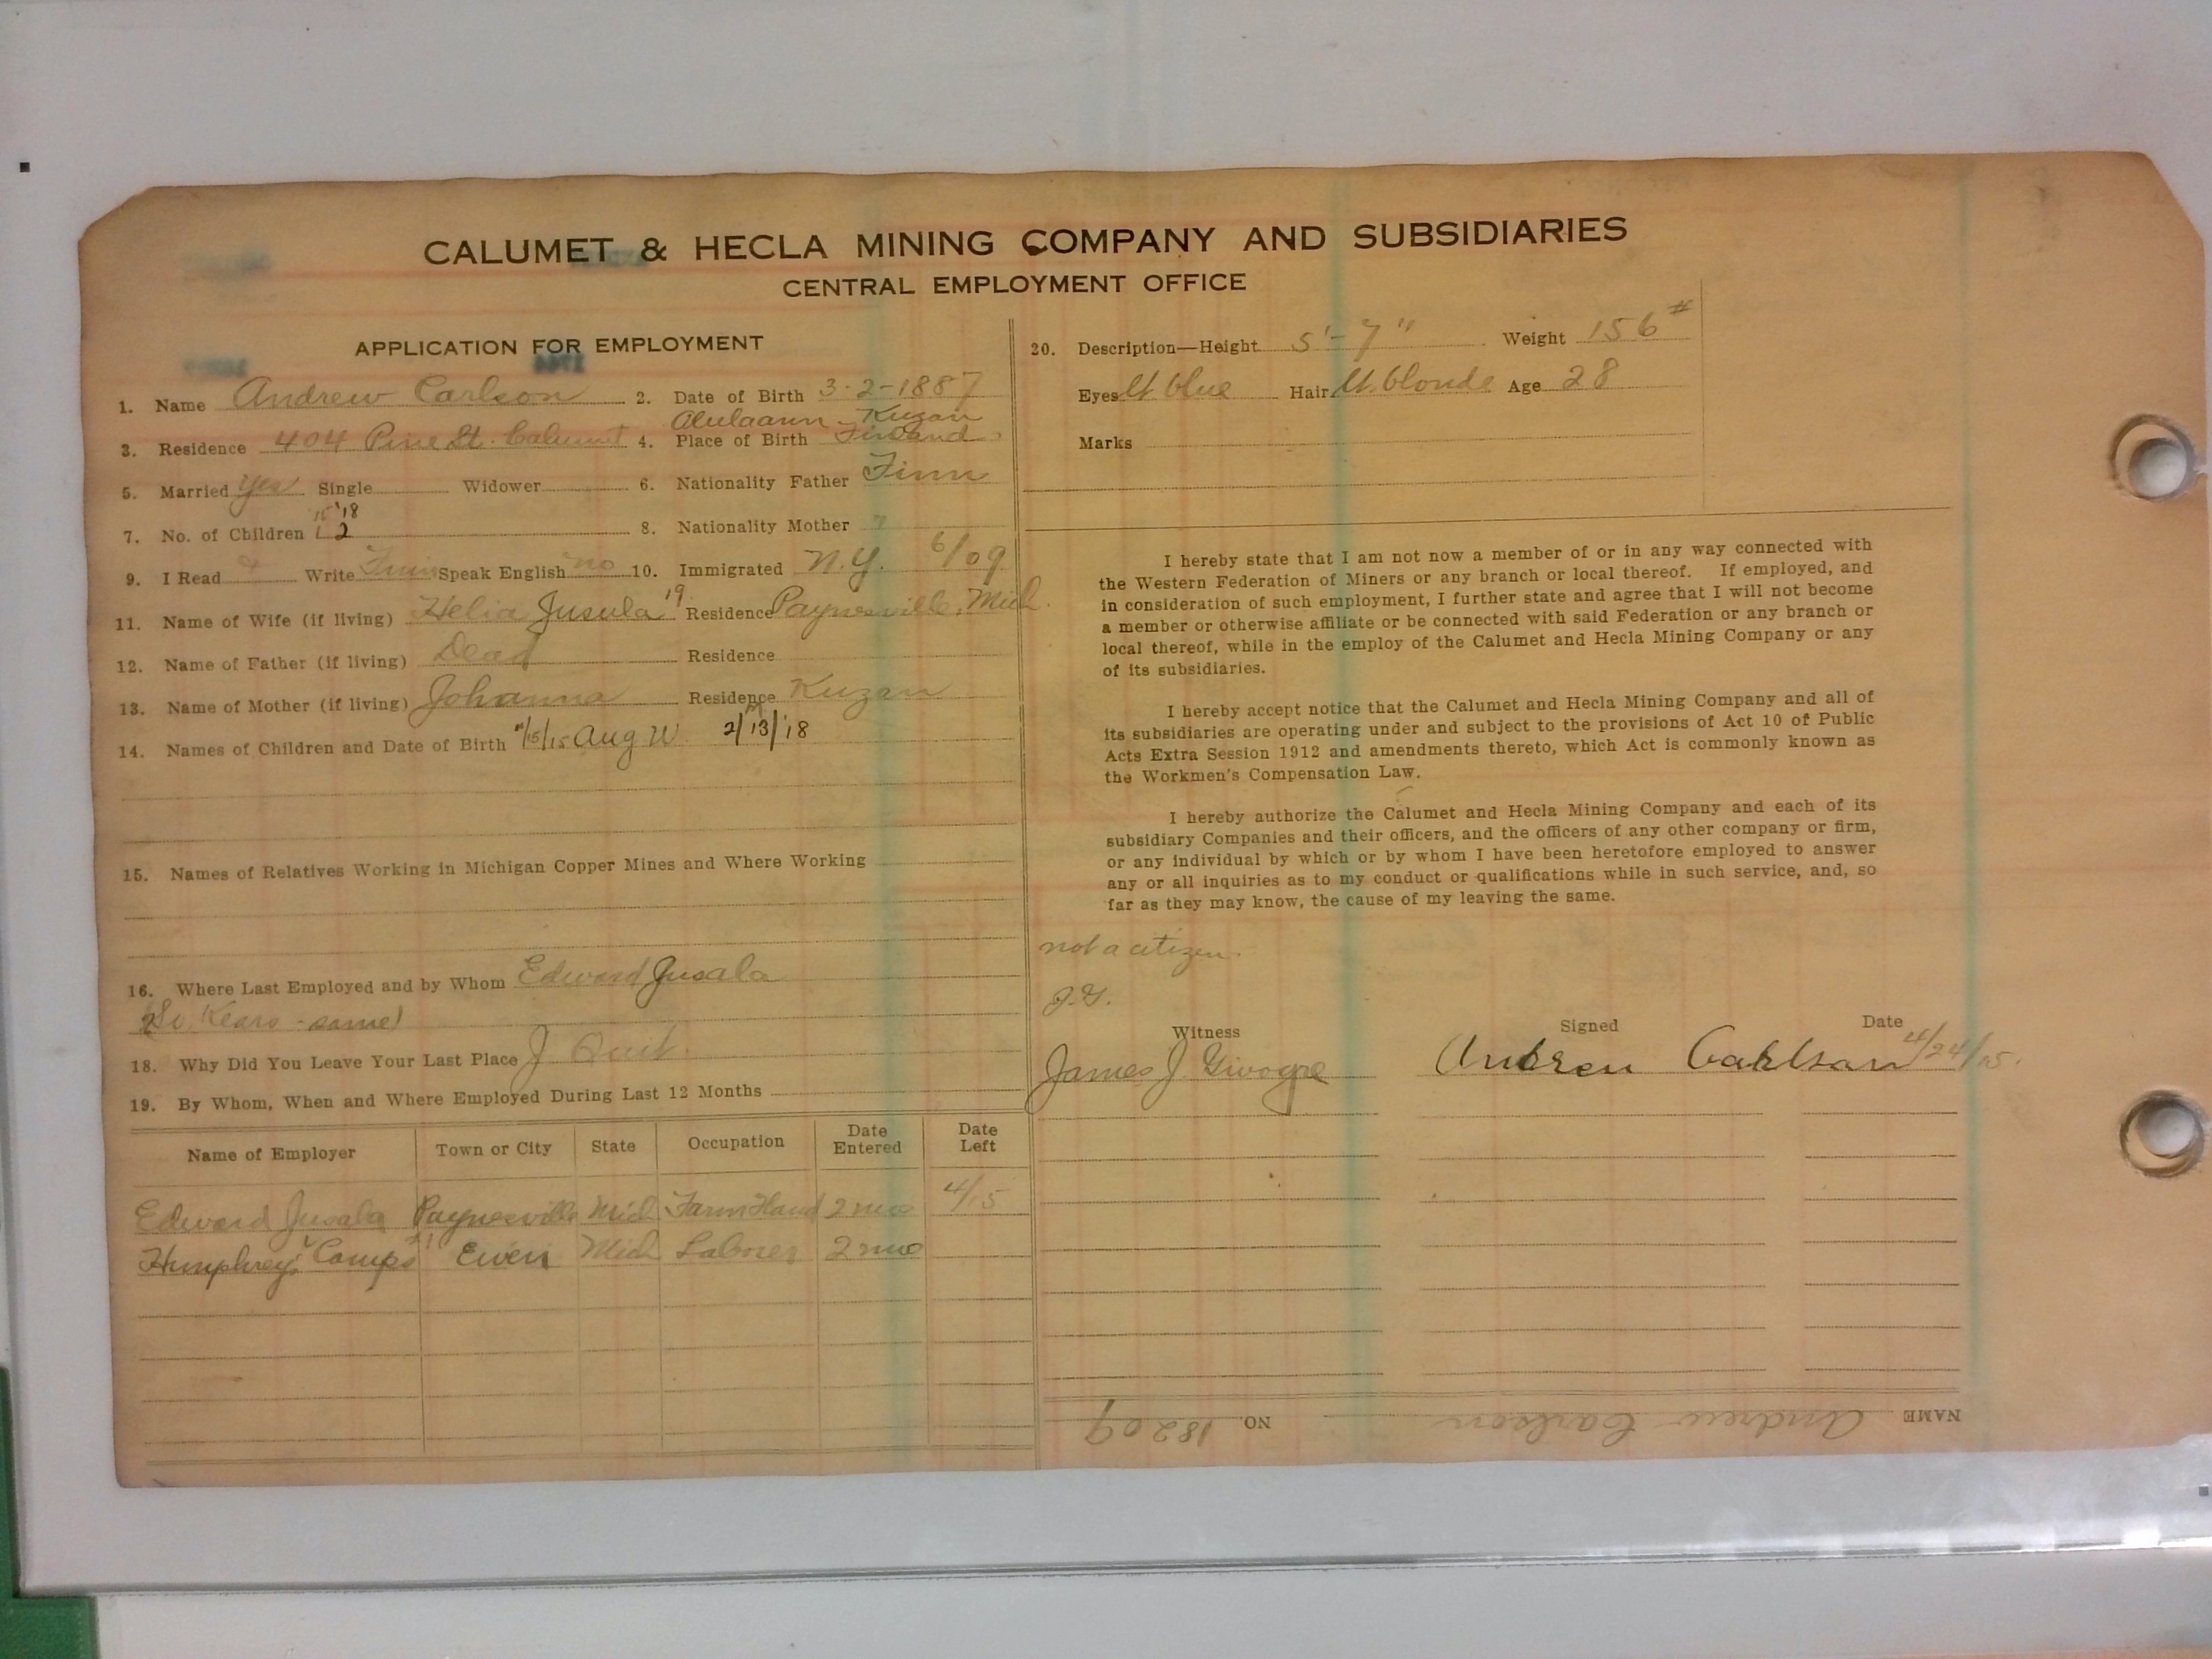 CALUMET & HECLA MINING COMPANY AND SUBSIDIARIES
CENTRAL EMPLOYMENT OFFICE
APPLICATION FOR EMPLOYMENT
1. Name Andrew Carlson 2. Date of Birth 3-2-1887
Kuzan
3. Residence 404 Pine St. Calumet 4. Place of Birth Finland
5. Married Yes Single Widower 6. Nationality Father Finn
15 '18
7. No. of Children 1 2 8. Nationality Mother "
9. I Read Write Finn Speak English no 10. Immigrated N.Y. 6/09
11. Name of Wife (if living) Helia Jusula 19 Residence Paynesville, Mich.
12. Name of Father (if living) Dead Residence
13. Name of Mother (if living) Johanna Residence Kuzan
14. Names of Children and Date of Birth Aug W 2/13/18
15. Names of Relatives Working in Michigan Copper Mines and Where Working
16. Where Last Employed and by Whom Edward Jusala
same)
18. Why Did You Leave Your Last Place Quit.
19. By Whom, When and Where Employed During Last 12 Months
Name of Employer Town or City State Occupation Date Entered Date Left
Edward Jusala Paynesville Mich Farm Hand 2 mo 4/15
Humphrey's Camps Ewen Mich Laborer 2 mo
20. Description—Height 5'-7" Weight 156#
Eyes Lt blue Hair Lt. blonde Age 28
Marks
I hereby state that I am not now a member of or in any way connected with
the Western Federation of Miners or any branch or local thereof. If employed, and
in consideration of such employment, I further state and agree that I will not become
a member or otherwise affiliate or be connected with said Federation or any branch or
local thereof, while in the employ of the Calumet and Hecla Mining Company or any
of its subsidiaries.
I hereby accept notice that the Calumet and Hecla Mining Company and all of
its subsidiaries are operating under and subject to the provisions of Act 10 of Public
Acts Extra Session 1912 and amendments thereto, which Act is commonly known as
the Workmen's Compensation Law.
I hereby authorize the Calumet and Hecla Mining Company and each of its
subsidiary Companies and their officers, and the officers of any other company or firm,
or any individual by which or by whom I have been heretofore employed to answer
any or all inquiries as to my conduct or qualifications while in such service, and, so
far as they may know, the cause of my leaving the same.
not a citizen.
J.G.
Witness Signed Date
James J. Andrew Carlson 4/24/15.
NAME Andrew Carlson NO. 18209